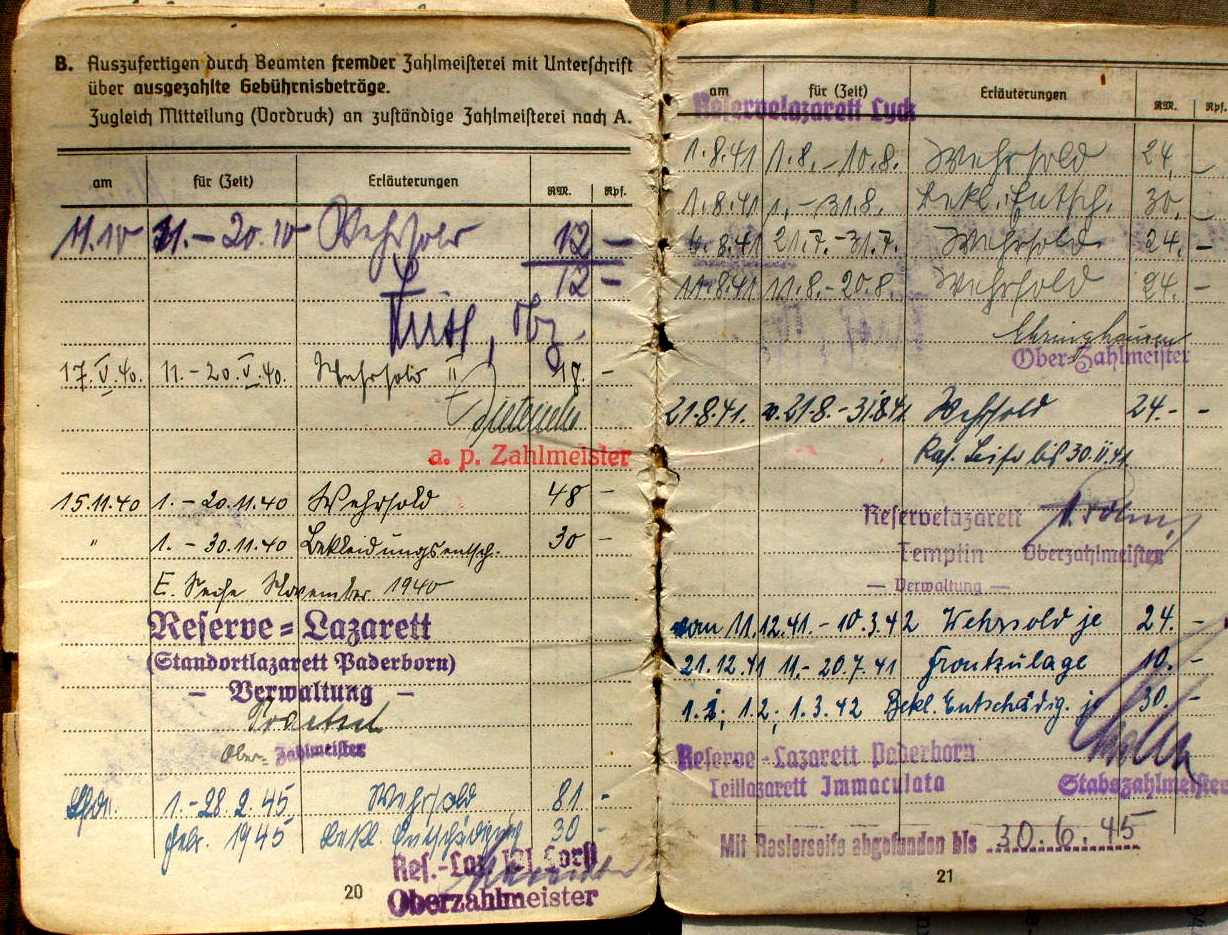 B. Auszufertigen durch Beamten fremder Zahlmeisterei mit Unterschrift
über ausgezahlte Gebührnisbeträge.
Zugleich Mitteilung (Vordruck) an zuständige Zahlmeisterei nach A.
am für (Zeit) Erläuterungen RM. Rpf.
11.10 11. – 20.10 Wehrsold 12 –
12 =
17.V.40. 11. – 20.V.40. Wehrsold II 18. –
a. p. Zahlmeister
15.11.40 1. – 20.11.40 Wehrsold 48 –
" 1. – 30.11.40 Bekleidungsentsch. 30 –
E. Seife November 1940
Reserve=Lazarett
(Standortlazarett Paderborn)
— Verwaltung —
Ober= Zahlmeister
1. – 28.2.45 Wehrsold 81 –
Febr. 1945 Bekl. Entschädigung 30 –
Res.-Laz.
Oberzahlmeister
20
am für (Zeit) Erläuterungen RM. Rpf.
Reservelazarett Lyck
1.8.41 1.8. – 10.8. Wehrsold 24. –
1.8.41 1. – 31.8. Bekl. Entsch. 30. –
6.8.41 21.7. – 31.7. Wehrsold 24. –
11.8.41 11.8. – 20.8. Wehrsold 24. –
Ober=Zahlmeister
21.8.41. v. 21.8. – 31.8.41 Wehrsold 24. – -
Ras. Seife bis 30.
Reservelazarett
Templin Oberzahlmeister
— Verwaltung —
vom 11.12.41. – 10.3.42 Wehrsold je 24. –
21.12.41 11. – 20.7.41 Frontzulage 10. –
1.1; 1.2; 1.3.42 Bekl. Entschädig. je 30. –
Reserve=Lazarett Paderborn
Teillazarett Immaculata Stabszahlmeister
Mit Rasierseife abgefunden bis 30.6.45
21